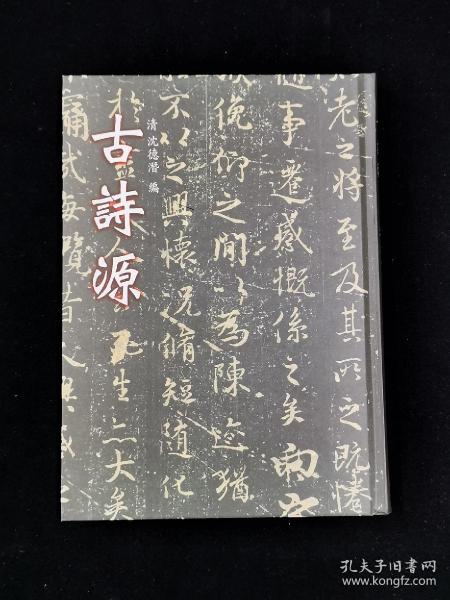 古詩源
清 沈德潛 編
老之將至及其所之既惓
隨事遷感慨係之矣向
俛仰之閒以為陳迹猶
不以之興懷況脩短隨化
於盡 人 死生亦大矣
痛哉每覽昔人興感
孔夫子旧书网
www.kongfz.com